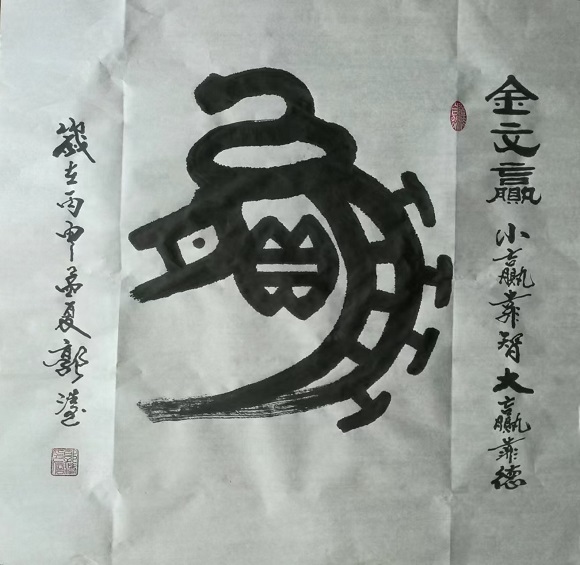 金文赢
小赢靠智大赢靠德
赢
岁在丙申孟夏郭